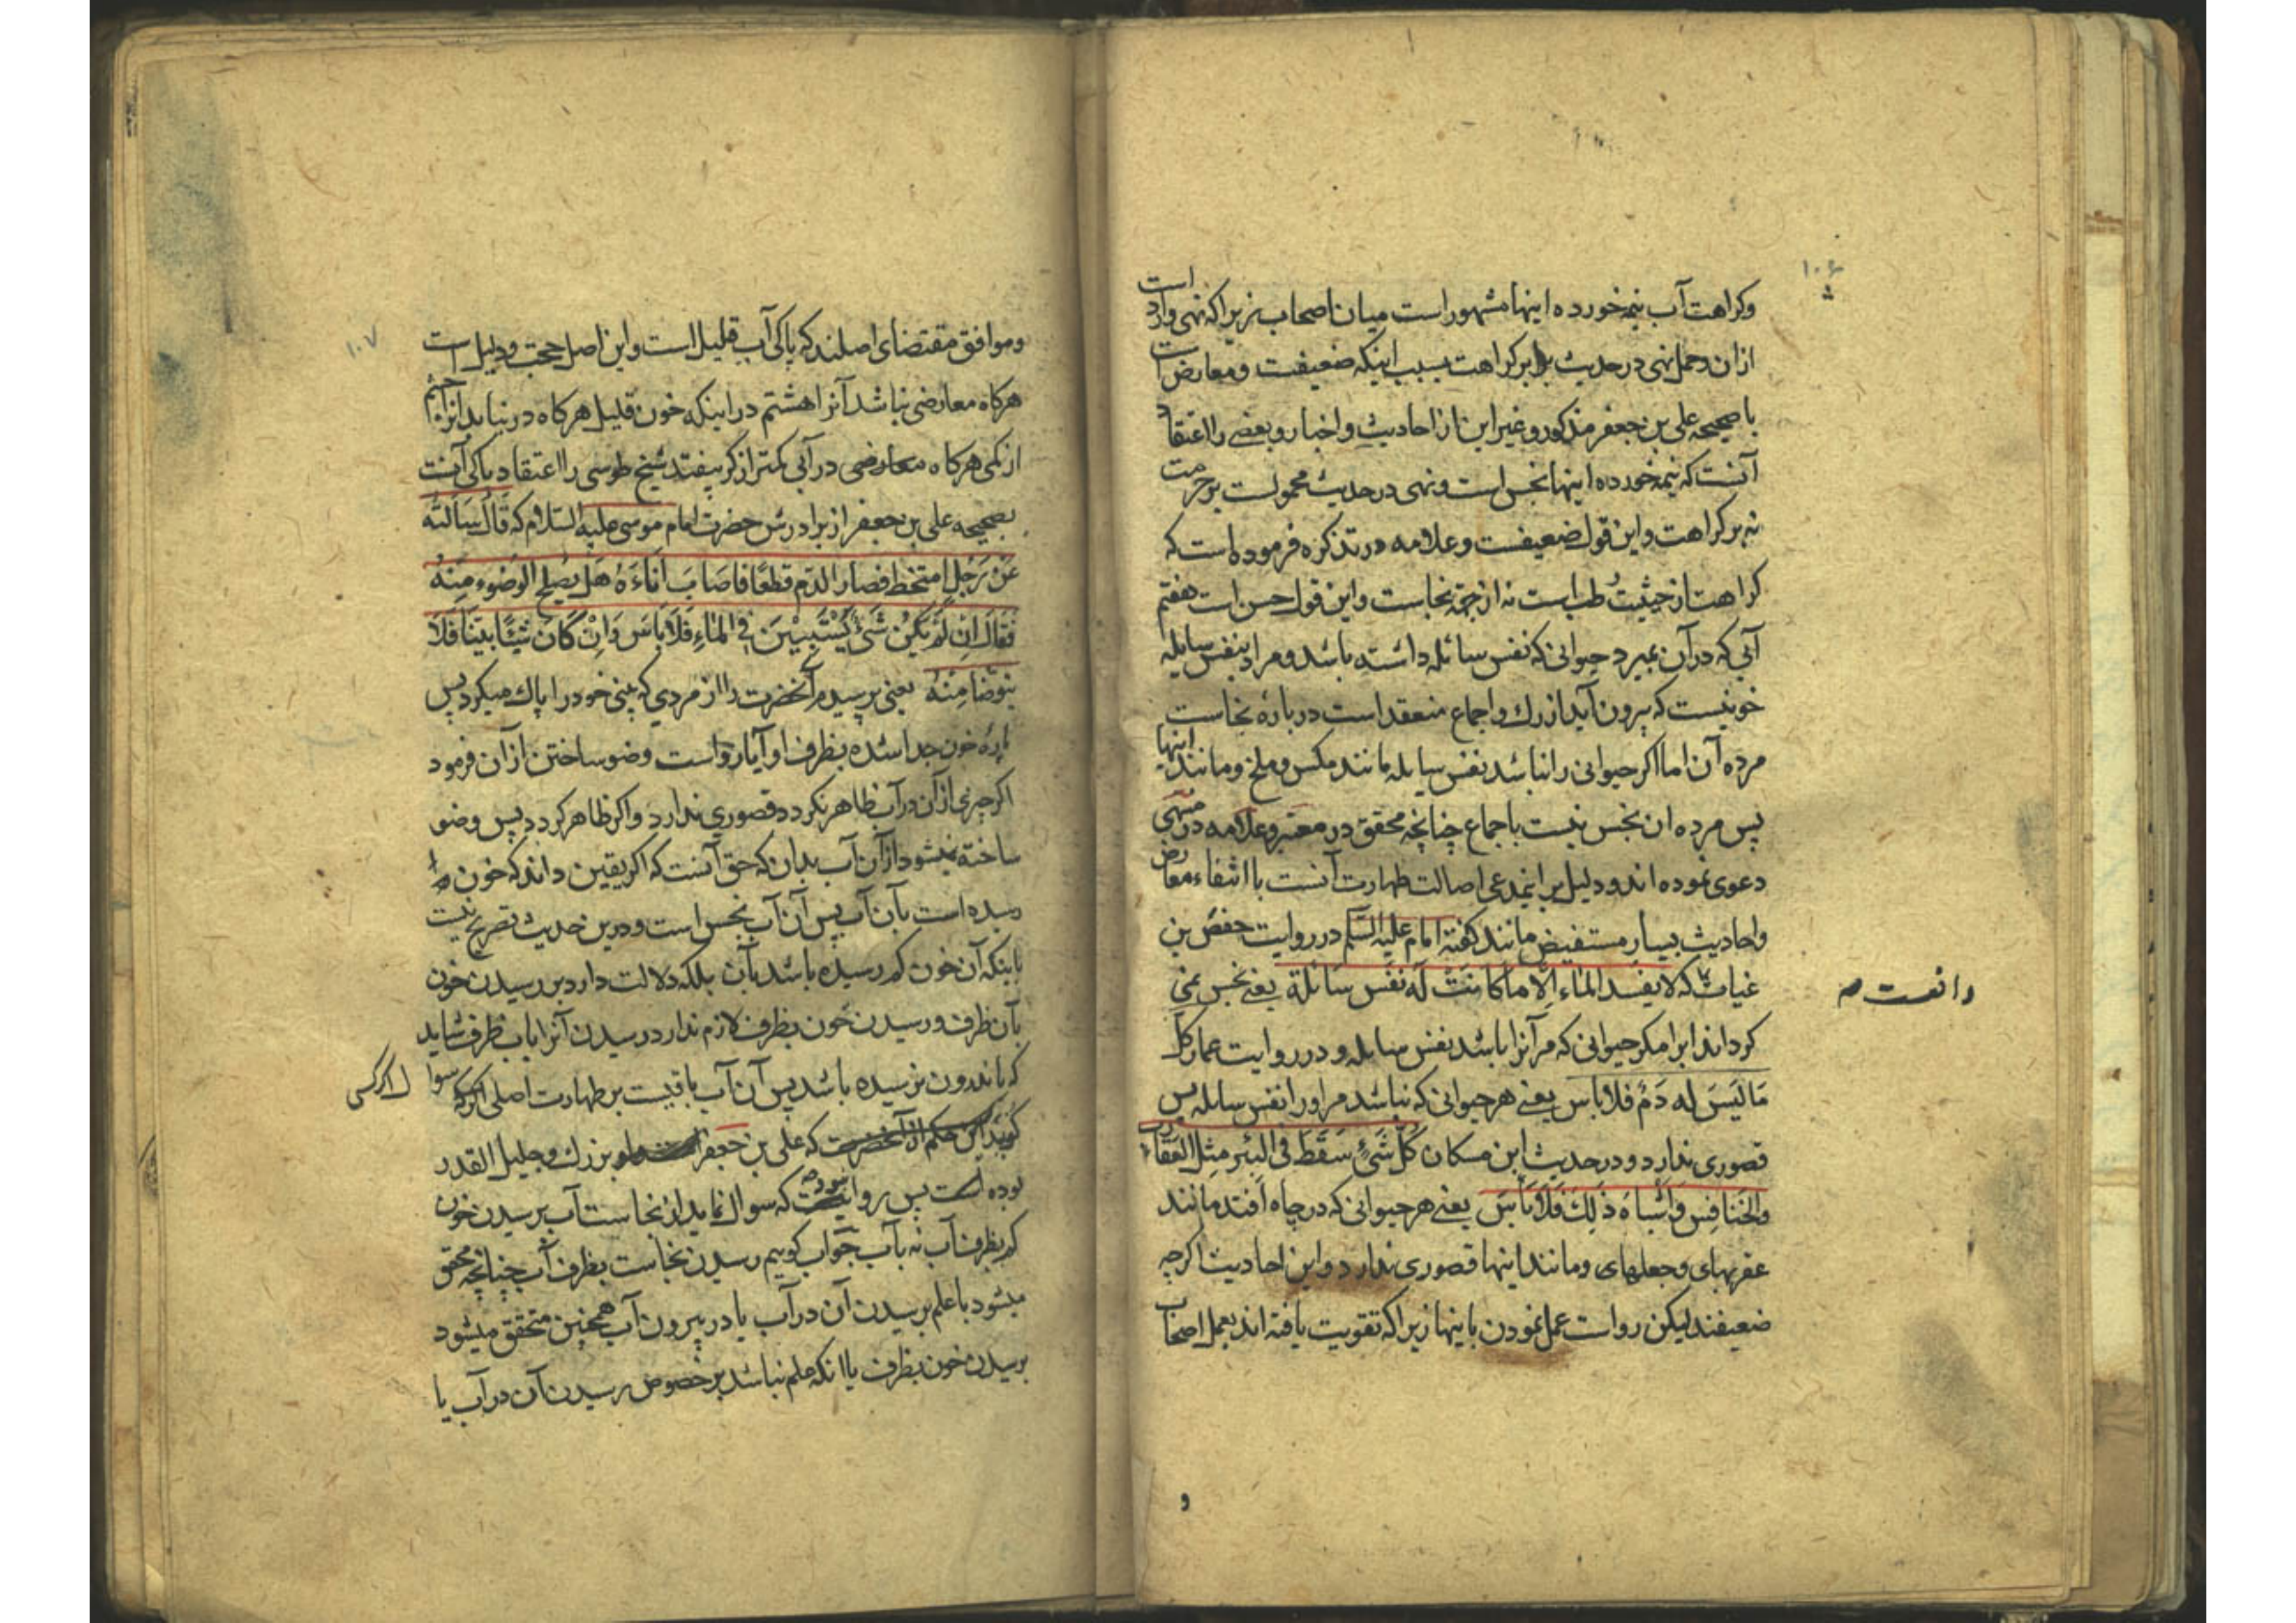 ۱۰۶
وکراهت آب نیمخورده اینها مشهور است میان اصحاب زیراکه نهی وارد است
ازان وحمل نهی در حدیث بر کراهت بسبب اینکه ضعیفست ومعارض است
با صحیحه علی بن جعفر مذکور وغیر این از احادیث واخبار وبعضی را اعتقاد
آنست که نیمخورده اینها نجس است ونهی در حدیث محمولست بر حرمت
نه بر کراهت واین قول ضعیفست وعلامه در تذکره فرموده است که
کراهت از حیثیت طب است نه از جهة نجاست واین قول حسن است هفتم
آبی که در آن بمیرد حیوانی که نفس سائله داشته باشد ومراد بنفس سایله
خونیست که بیرون آید از رك واجماع منعقد است در بارۀ نجاست
مرده آن اما اکر حیوانی را نباشد نفس سایله مانند مکس وملخ ومانند اینها
پس مرده ان نجس نیست باجماع چنانچه محقق در معتبر وعلامه در منتهی
دعوی نموده اند ودلیل بر اینمدعی اصالت طهارت آنست با انتفاء معارض
واحادیث بسیار مستفیض مانند کفتۀ امام علیه السلم در روایت حفص بن
غیاث که لا یفسد الماء الّا ما کانت له نفس سائلة یعنی نجس نمی
کرداند ابرا مکر حیوانی که مر آنرا باشد نفس سایله ودر روایت عمار کلّ
مَا لَیسَ له دَمٌ فلا باس یعنی هر حیوانی که نباشد مر او را نفس سایله پس
قصوری ندارد ودر حدیث ابن مسکان کُلّ شَیءٍ سَقَطَ فی البئر مِثل العَقارب
والخَنافِس وَاَشباه ذٰلِكَ فَلا بَأسَ یعنی هر حیوانی که در چاه افتد مانند
عقربهای وجعلهای ومانند اینها قصوری ندارد واین احادیث اکرچه
ضعیفند لیکن رواست عمل نمودن باینها زیراکه تقویت یافته اند بعمل اصحاب
و
۱۰۷
وموافق مقتضای اصلند که پاکی آب قلیل است واین اصل حجت ودلیل است
هرکاه معارضی نباشد آنرا هشتم در اینکه خون قلیل هرکاه در نیابد آنرا چشم
از کمی هرکاه در آبی کمتر از کر بیفتد شیخ طوسی را اعتقاد پاکی آنست
بصحیحه علی بن جعفر از برادرش حضرت امام موسی علیه السلام که قَالَ سَأَلتُه
عَنْ رَجُلٍ امتَخط فصَار الدّم قطعًا فاصَابَ اناءَهُ هَل یصلح الوضوء مِنهُ
فَقَالَ اِن لَم یَکُن شَیءٌ یَستَبِینُ فی المَاءِ فَلا باسَ وَاِن کَانَ شَیئًا بَیّنًا فَلا
یتوضا مِنهُ یعنی پرسیدم آنحضرت را از مردی که بینی خود را پاك میکرد پس
پارۀ خون جدا شده بظرف او آیا رواست وضو ساختن از آن فرمود
اکر چیزی از آن در آب ظاهر نکردد قصوری ندارد واکر ظاهر کردد پس وضو
ساخته نمیشود از آن آب بدان که حق آنست که اکر یقین داند که خون
رسیده است بآن آب پس آن آب نجس است ودرین حدیث تصریح نیست
باینکه آن خون کم رسیده باشد بآن بلکه دلالت دارد بر رسیدن خون
بآن ظرف ورسیدن خون بظرف لازم ندارد رسیدن آنرا باب ظرف شاید
که باندرون نرسیده باشد پس آن آب باقیست بر طهارت اصلی سوال اکر کسی
کوید که علی بن جعفر بزرك وجلیل القدر
بوده است پس روا نبوده که سوال نماید از نجاست آب برسیدن خون
کم بظرف آب نه بآب جواب کوییم رسیدن نجاست بظرف آب چنانچه محقق
میشود با علم برسیدن آن در آب یا در بیرون آب همچنین متحقق میشود
برسیدن خون بظرف با انکه علم نباشد بر خصوص رسیدن آن در آب یا